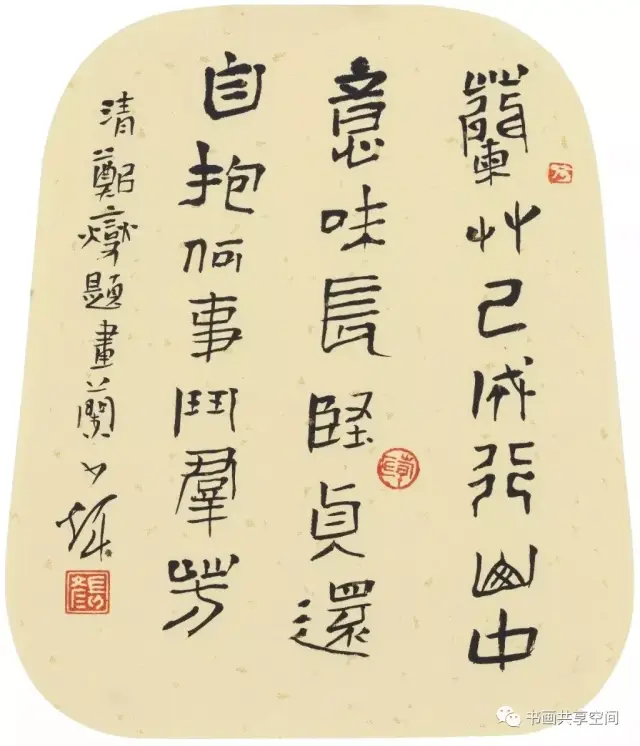 蘭艸已成行山中
意味長堅貞還
自抱何事鬥羣芳
清鄭燮題畫蘭
书画共享空间